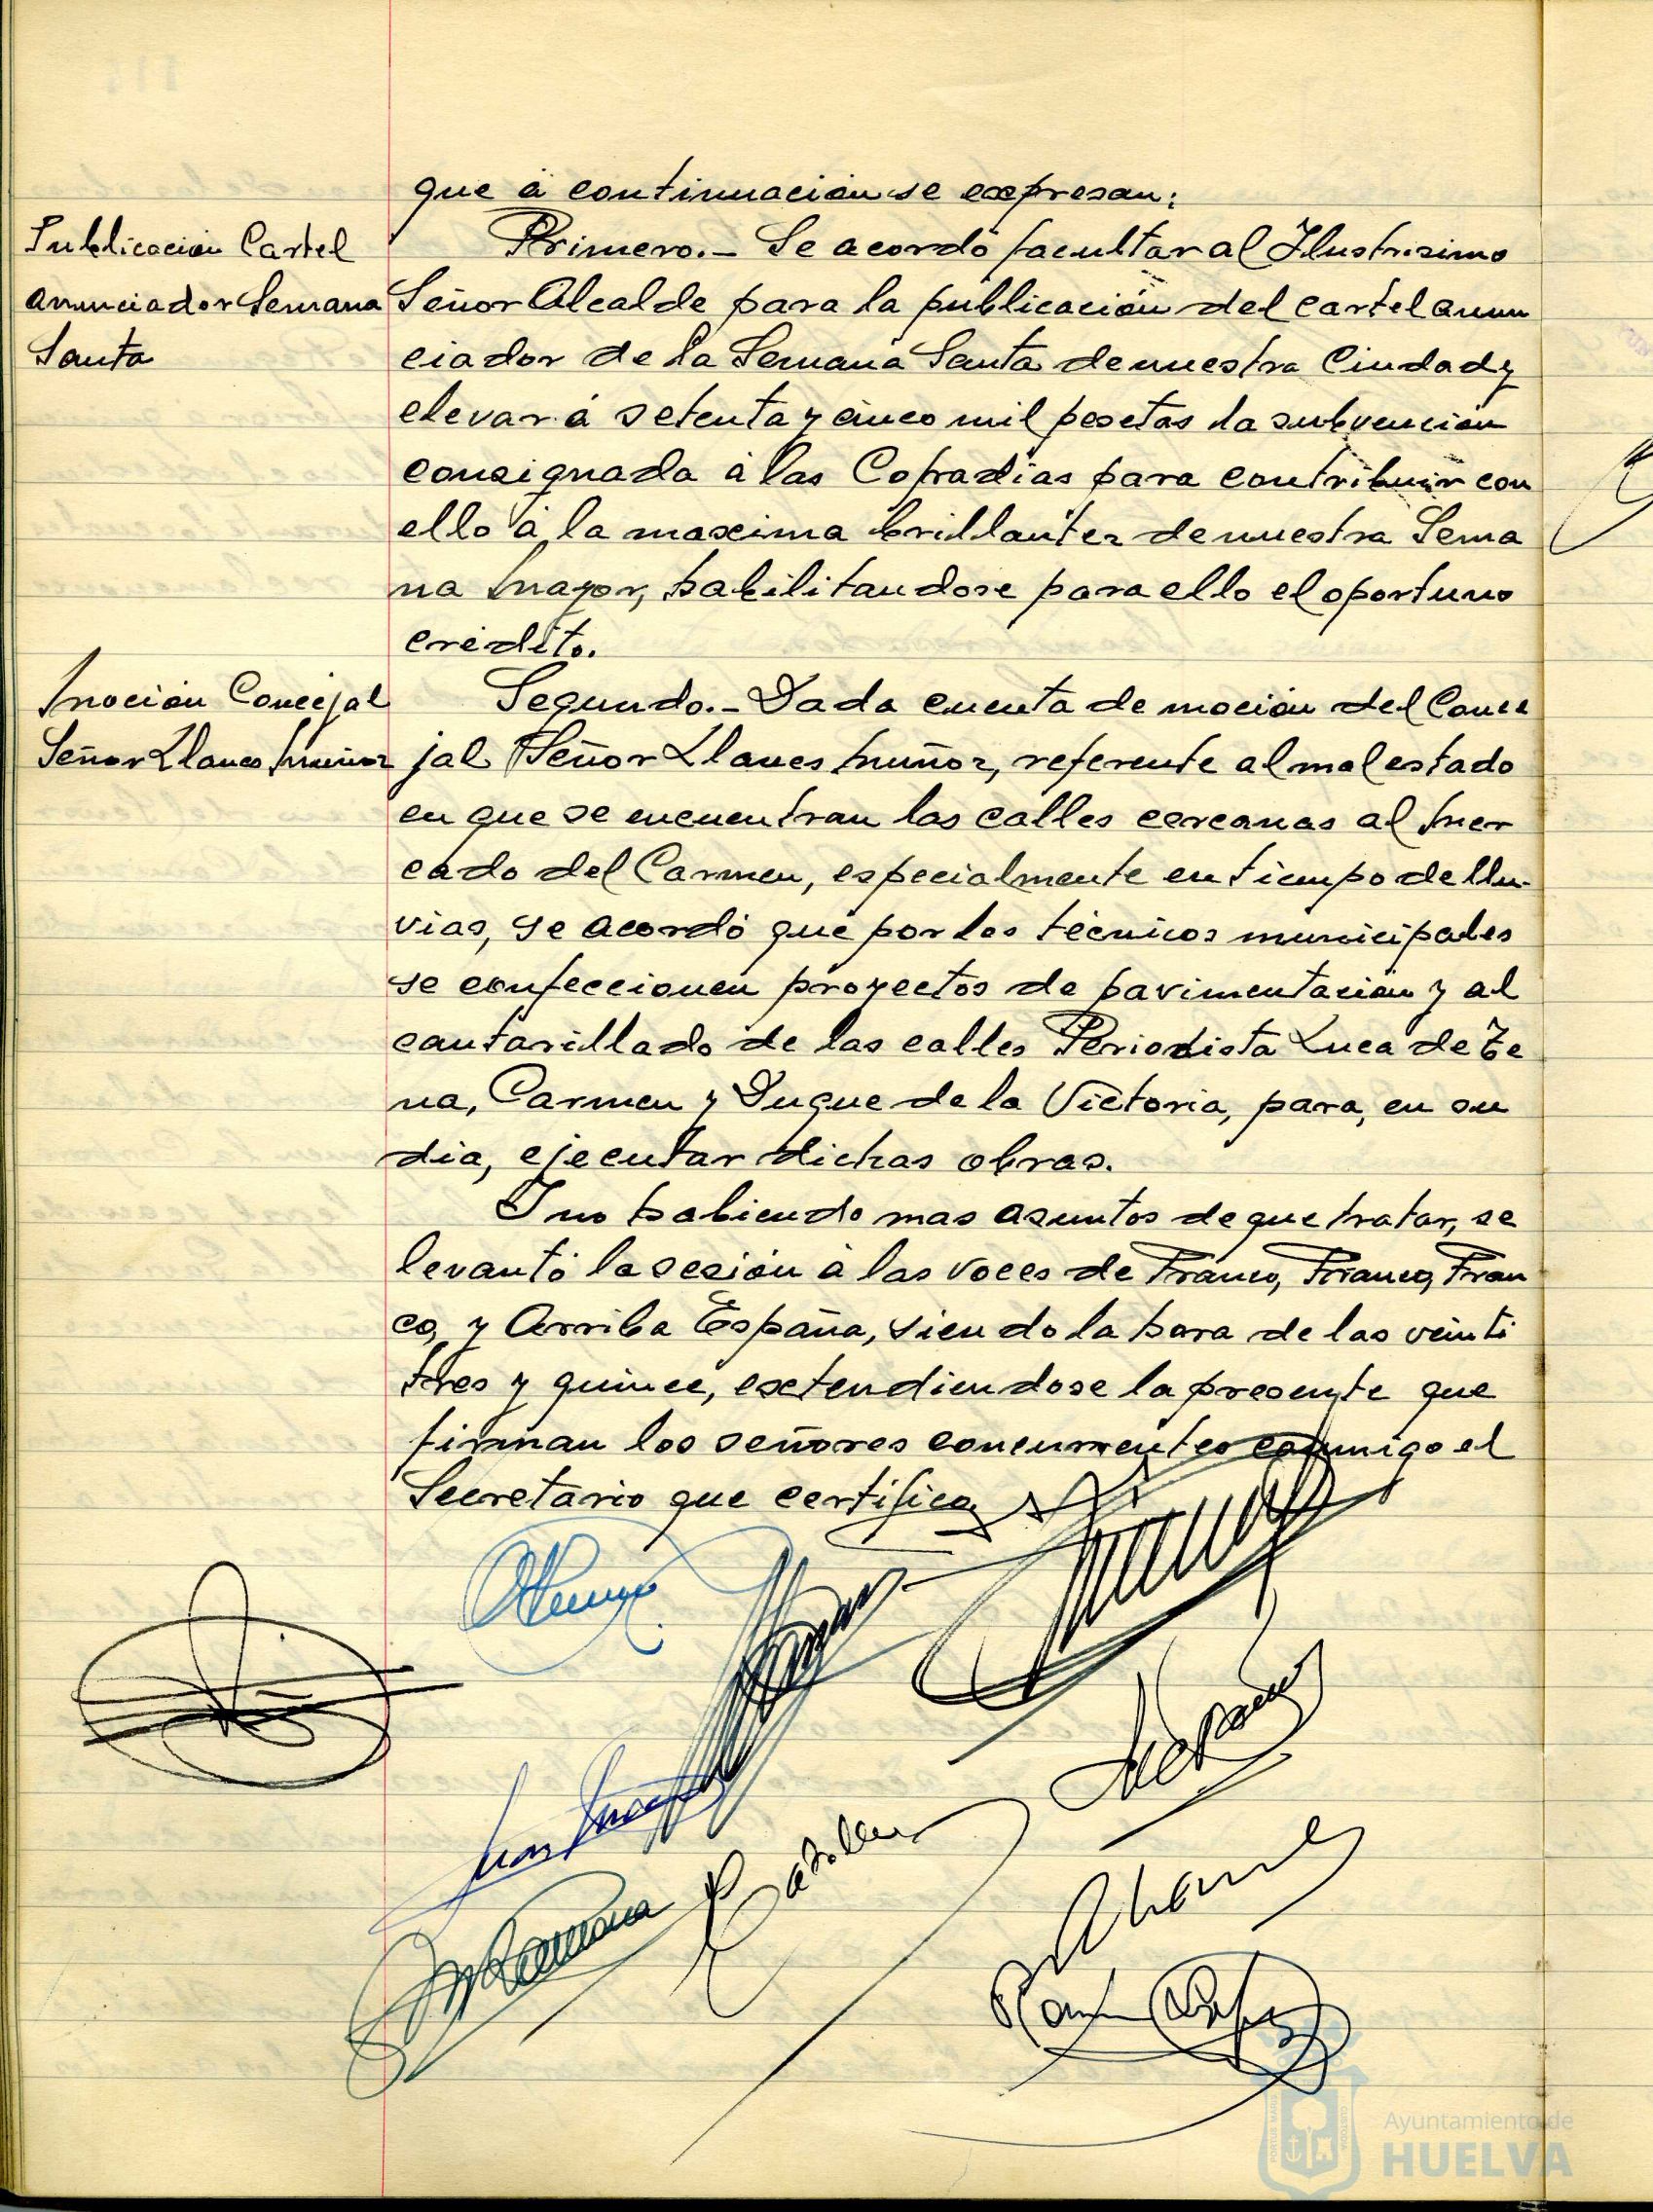 que á continuación se expresan:
Publicación Cartel
anunciador Semana
Santa
Primero.- Se acordó facultar al Ilustrisimo
Señor Alcalde para la publicación del cartel anun
ciador de la Semana Santa de nuestra Ciudad y
elevar á setenta y cinco mil pesetas la subvención
consignada á las Cofradías para contribuir con
ello á la maxima brillantez de nuestra Sema
na Mayor, habilitandose para ello el oportuno
crédito.
Moción Concejal
Señor Llanes Muñoz
Segundo.- Dada cuenta de moción del Conce
jal Señor Llanes Muñoz, referente al mal estado
en que se encuentran las calles cercanas al Mer
cado del Carmen, especialmente en tiempo de llu-
vias, se acordó que por los técnicos municipales
se confeccionen proyectos de pavimentación y al
cantarillado de las calles Periodista Luca de Te
na, Carmen y Duque de la Victoria, para, en su
dia, ejecutar dichas obras.
Y no habiendo mas asuntos de que tratar, se
levantó la sesión á las voces de Franco, Franco, Fran
co, y Arriba España, siendo la hora de las veinti
tres y quince, extendiendose la presente que
firman los señores concurrentes conmigo el
Secretario que certifica
Ayuntamiento de
HUELVA